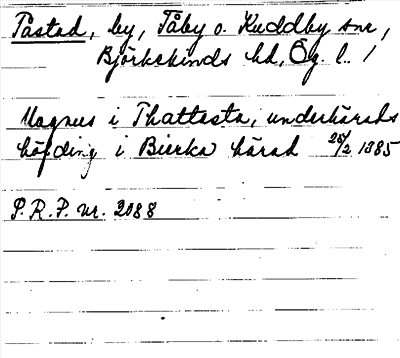 Tåstad, by, Tåby o. Kuddby snr,
Björkekinds hd, Ög. l. /
Magnus i Thattasta, underhärads
höfding i Bierka härad 25/2 1385
P.R.P. nr. 2088